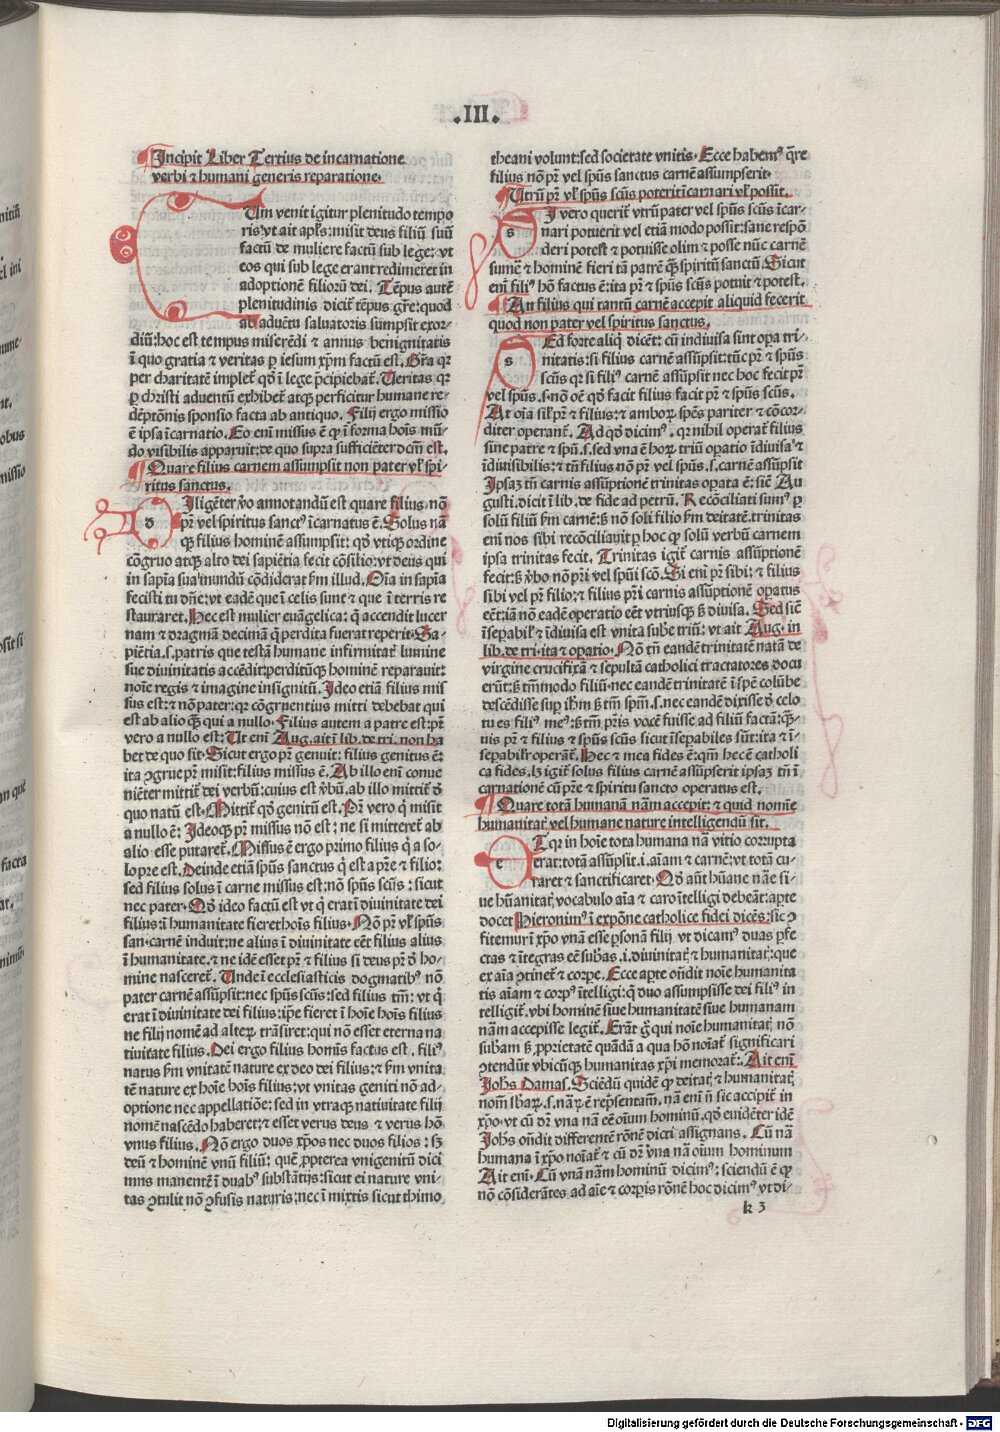 .III.
Incipit Liber Tertius de incarnatione
verbi ⁊ humani generis reparatione.
Um venit igitur plenitudo tempo
ris: vt ait apl's: misit deus filiũ suũ
factũ de muliere factũ sub lege: vt
eos qui sub lege erant redimeret in
adoptionẽ filiorũ dei. Tẽpus autẽ
plenitudinis dicit̃ tẽpus grẽ: quod
ab aduẽtu saluatoris sumpsit exor-
diũ: hoc est tempus miserẽdi ⁊ annus benignitatis
ĩ quo gratia ⁊ veritas ꝑ iesum xp̃m factũ est. Gr̃a qꝛ
per charitatẽ implet̃ qð ĩ lege p̃cipiebat̃. Ueritas qꝛ
ꝑ christi aduentũ exhibet̃ atqꝫ perficitur humane re-
dẽptõnis sponsio facta ab antiquo. Filij ergo missio
ẽ ipsa ĩcarnatio. Eo em̃ missus ẽ ꝙ ĩ forma hoĩs mũ-
do visibilis apparuit: de quo supra sufficiẽter dcm̃ est.
Quare filius carnem assumpsit non pater vľ spi-
ritus sanctus.
d
Iligẽter ṽo annotandũ est quare filius nõ
pr̃ vel spiritus sanctꝰ ĩcarnatus ẽ. Solus nã
qꝫ filius hominẽ assumpsit: qð vtiqꝫ ordine
cõgruo atqꝫ alto dei sapiẽtia fecit cõsilio: vt deus qui
in sapĩa sua mundũ cõdiderat s̃m illud. Oĩa in sapĩa
fecisti tu dñe: vt eadẽ que ĩ celis sunt ⁊ que ĩ terris re
stauraret. Hec est mulier euãgelica: q̃ accendit lucer
nam ⁊ dragmã decimã q̃ perdita fuerat reperit. Sa-
piẽtia. s. patris que testã humane infirmitat̃ lumine
sue diuinitatis accẽdit: perditũqꝫ hominẽ reparauit:
noĩe regis ⁊ imagine insignitũ. Ideo etiã filius mis
sus est: ⁊ nõ pater: qꝛ cõgruentius mitti debebat qui
est ab alio qꝫ̃ qui a nullo. Filius autem a patre est: pr̃
vero a nullo est: Ut em̃ Aug. ait ĩ lib. de tri. non ha
bet de quo sit. Sicut ergo pr̃ genuit: filius genitus ẽ:
ita ꝯgrue pr̃ misit: filius missus ẽ. Ab illo em̃ conue
niẽter mittit̃ dei verbũ: cuius est ṽbũ. ab illo mittit̃ ð
quo natũ est. Mittit̃ qð genitũ est. Pr̃ vero q̃ misit
a nullo ẽ: Ideoqꝫ pr̃ missus nõ est: ne si mitteret̃ ab
alio esse putaret̃. Missus ẽ ergo primo filius q̃ a so-
lo pre est. Deinde etiã spũs sanctus q̃ est a pr̃e ⁊ filio:
sed filius solus ĩ carne missus est: nõ spũs scũs: sicut
nec pater. Qð ideo factũ est vt q̃ erat ĩ diuinitate dei
filius: ĩ humanitate fieret hoĩs filius. Nõ pr̃ vľ spũs
san. carnẽ induit: ne alius ĩ diuinitate eẽt filius alius
ĩ humanitate. ⁊ ne idẽ esset pr̃ ⁊ filius si deus pr̃ ð ho-
mine nasceret̃. Unde ĩ ecclesiasticis dogmatibꝰ nõ
pater carnẽ assũpsit: nec spũs scũs: sed filius tm̃: vt q̃
erat ĩ diuinitate dei filius: ip̃e fieret ĩ hoĩe hoĩs filius
ne filij nomẽ ad alteꝝ trãsiret: qui nõ esset eterna na
tiuitate filius. Dei ergo filius homĩs factus est. filiꝰ
natus s̃m vnitatẽ nature ex deo dei filius: ⁊ s̃m vnita
tẽ nature ex hoĩe hoĩs filius: vt vnitas geniti nõ ad-
optione nec appellatiõe: sed in vtraqꝫ natiuitate filij
nomẽ nascẽdo haberet: ⁊ esset verus deus ⁊ verus hõ
vnus filius. Nõ ergo duos xp̃os nec duos filios: sꝫ
deũ ⁊ hominẽ vnũ filiũ: quẽ ꝓpterea vnigenitũ dici
mus manentẽ ĩ duabꝰ substãtijs: sicut ei nature vni-
tas ꝯtulit nõ ꝯfusis naturis: nec ĩ mixtis sicut thimo
theani volunt: sed societate vnitis. Ecce habemꝰ q̃re
filius nõ pr̃ vel spũs sanctus carnẽ assumpserit.
Utrũ pr̃ vľ spũs scũs poterit ĩcarnari vľ possit.
s
I vero querit̃ vtrũ pater vel spũs scũs ĩcar-
nari potuerit vel etiã modo possit: sane respõ
deri potest ⁊ potuisse olim ⁊ posse nũc carnẽ
sumẽ ⁊ hominẽ fieri tã patrẽ qꝫ̃ spiritũ sanctũ. Sicut
em̃ filiꝰ hõ factus ẽ: ita pr̃ ⁊ spũs scũs potuit ⁊ potest.
An filius qui tantũ carnẽ accepit aliquid fecerit
quod non pater vel spiritus sanctus.
s
Ed forte aliq̃s dicẽt: cũ indiuisa sint opa tri-
nitatis: si filius carnẽ assũpsit: tũc pr̃ ⁊ spũs
scũs qꝛ si filiꝰ carnẽ assũpsit nec hoc fecit pr̃
vel spũs. s. nõ oẽ qð facit filius facit pr̃ ⁊ spũs scũs.
At oĩa siľ pr̃ ⁊ filius: ⁊ amboꝝ spẽs pariter ⁊ cõcor-
diter operant̃. Ad qð dicimꝰ. qꝛ nihil operat̃ filius
sine patre ⁊ spũ. s. sed vna ẽ hoꝝ triũ opatio ĩdiuisa ⁊
ĩdiuisibilis: ⁊ tñ filius nõ pr̃ vel spũs. s. carnẽ assũpsit
Ipsaꝫ tñ carnis assũptionẽ trinitas opata ẽ: siẽ Au
gusti. dicit ĩ lib. de fide ad petrũ. Recõciliati sumꝰ ꝑ
solũ filiũ s̃m carnẽ: sꝫ nõ soli filio s̃m deitatẽ. trinitas
em̃ nos sibi recõciliauit ꝑ hoc ꝙ solũ verbũ carnem
ipsa trinitas fecit. Trinitas igit̃ carnis assũptionẽ
fecit: sꝫ ṽbo nõ pr̃i vel spũi scõ. Si em̃ pr̃ sibi: ⁊ filius
sibi vel pr̃ filio: ⁊ filius pr̃i carnis assũptionẽ opatus
eẽt: iã nõ eadẽ operatio eẽt vtriusqꝫ sꝫ diuisa. Sed siẽ
ĩsepabiľ ⁊ ĩdiuisa est vnita sub̃e triũ: vt ait Aug. in
lib. de tri. ita ⁊ opatio. Nõ tñ eandẽ trinitatẽ natã de
virgine crucifixã ⁊ sepultã catholici tractatores docu
erũt: sꝫ tm̃modo filiũ. nec eandẽ trinitatẽ ĩ spẽ colũbe
descẽdisse sup ih̃m sꝫ tm̃ spm̃. s. nec eandẽ dixisse ð celo
tu es filiꝰ meꝰ: sꝫ tm̃ pr̃is vocẽ fuisse ad filiũ factã: qꝫ̃-
uis pr̃ ⁊ filius ⁊ spũs scũs sicut ĩsepabiles sũt: ita ⁊ ĩ-
sepabiľr operãt̃. Hec ⁊ mea fides ẽ: qm̃ hec ẽ catholi
ca fides. lꝫ igit̃ solus filius carnẽ assũpserit ipsaꝫ tñ ĩ
carnationẽ cũ pr̃e ⁊ spiritu sancto operatus est.
Quare totã humanã nãm accepit: ⁊ quid nomĩe
humanitat̃ vel humane nature intelligendũ sit.
e
T qꝛ in hoĩe tota humana nã vitio corrupta
erat: totã assũpsit. i. aĩam ⁊ carnẽ: vt totã cu-
raret ⁊ sanctificaret. Qð aũt hũane nãe si-
ue hũanitat̃ vocabulo aĩa ⁊ caro ĩtelligi debeãt: apte
docet Hieronimꝰ ĩ expõne catholice fidei dicẽs: sic ꝯ
fitemur ĩ xp̃o vnã esse ꝑsonã filij vt dicamꝰ duas ꝑfe
ctas ⁊ ĩtegras eẽ sub̃as. i. diuinitat̃ ⁊ humanitat̃: que
ex aĩa ꝯtinet̃ ⁊ corpe. Ecce apte oñdit noĩe humanita
tis aĩam ⁊ corpꝰ ĩtelligi: q̃ duo assumpsisse dei filiꝰ in
telligit̃. vbi hominẽ siue humanitatẽ siue humanam
nãm accepisse legit̃. Erãt g̃ qui noĩe humanitat̃ nõ
sub̃am sꝫ ꝓprietatẽ quãdã a qua hõ noĩat̃ significari
ꝯtendũt vbicũqꝫ humanitas xp̃i memorat̃. Ait em̃
Joħs Damas. Sciẽdũ quidẽ ꝙ deitat̃ ⁊ humanitat̃
nom̃ sb̃aꝝ. s. nãꝝ ẽ rep̃sentam̃. nã em̃ ñ sic accipit̃ in
xp̃o. vt cũ dr̃ vna nã eẽ oĩum hominũ. qð euidẽter idẽ
Joħs oñdit differentẽ rõnẽ dicti assignans. Cũ nã
humana ĩ xp̃o noĩat̃ ⁊ cũ dr̃ vna nã oĩum hominum
Ait em̃. Cũ vnã nãm hominũ dicimꝰ: sciendũ ẽ ꝙ
nõ cõsiderãtes ad aĩe ⁊ corpis rõnẽ hoc dicimꝰ vt di-
k 3
Digitalisierung gefördert durch die Deutsche Forschungsgemeinschaft - DFG